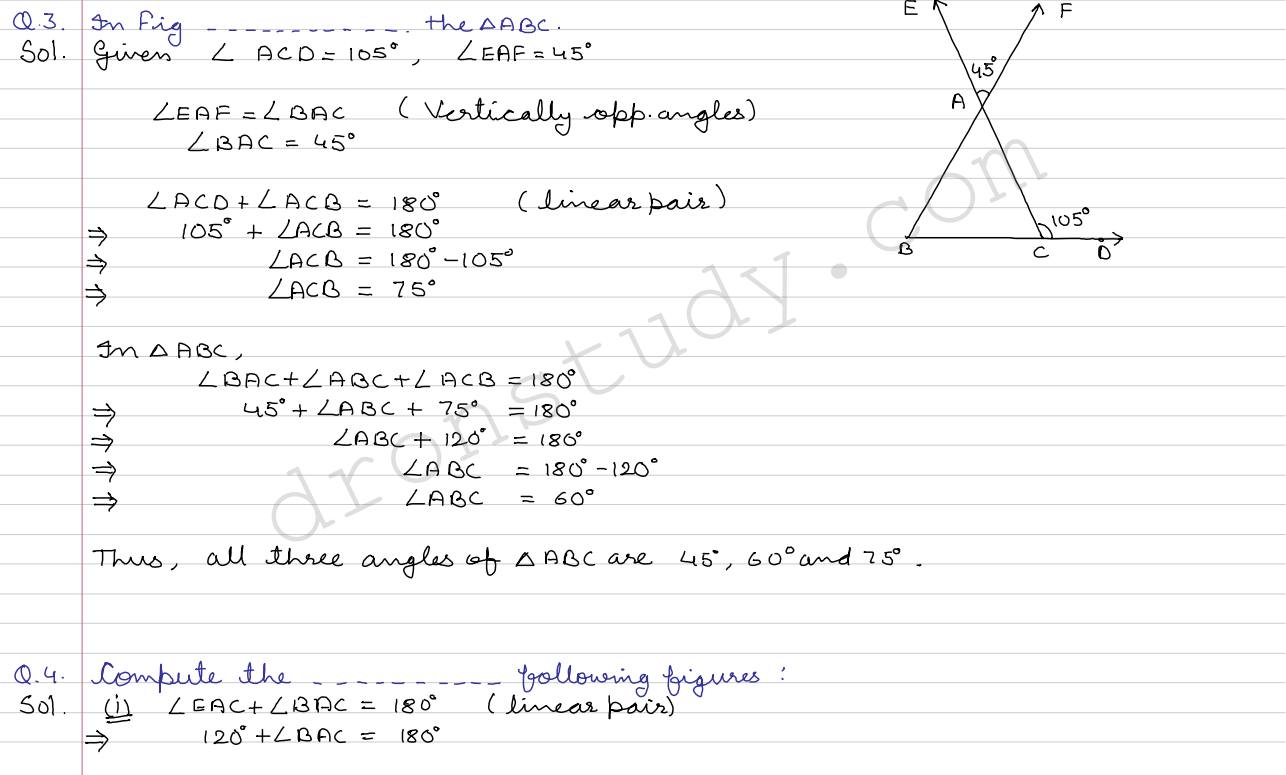 Q.3. In Fig ------------. the △ABC.
Sol. Given ∠ACD = 105°, ∠EAF = 45°
∠EAF = ∠BAC (Vertically opp. angles)
∠BAC = 45°
∠ACD + ∠ACB = 180° (linear pair)
⇒ 105° + ∠ACB = 180°
⇒ ∠ACB = 180° - 105°
⇒ ∠ACB = 75°
In △ABC,
∠BAC + ∠ABC + ∠ACB = 180°
⇒ 45° + ∠ABC + 75° = 180°
⇒ ∠ABC + 120° = 180°
⇒ ∠ABC = 180° - 120°
⇒ ∠ABC = 60°
Thus, all three angles of △ABC are 45°, 60° and 75°.
Q.4. Compute the ---------- following figures :
Sol. (i) ∠EAC + ∠BAC = 180° (linear pair)
⇒ 120° + ∠BAC = 180°
E F
45°
A
105°
B C D
dronstudy.com